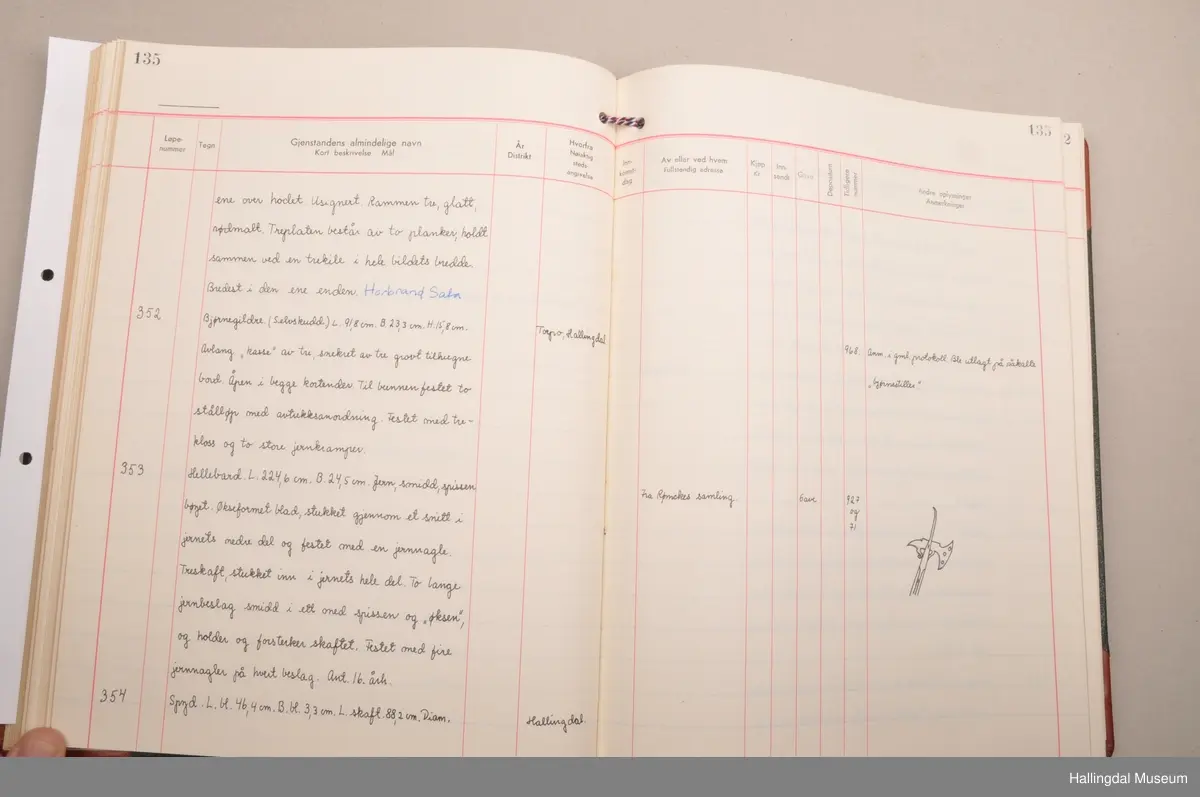 135
135
2
Løpe-nummer
Tegn
Gjenstandens almindelige navn
Kort beskrivelse Mål
År
Distrikt
Hvorfra
Nøiaktig
steds-
angivelse
Inn-
komst-
dag
Av eller ved hvem
Fullstendig adresse
Kjøpt
kr
Inn-
sendt
Gave
Depositum
Tidligere
nummer
Andre oplysninger
Anmerkninger
ene over hodet Usignert. Rammen tre, glatt,
rødmalt. Treplaten består av to planker, holdt
sammen ved en trekile i hele bildets bredde.
Bredest i den ene enden.
352
Bjørnegildre. (Selvskudd.) L. 91,8 cm. B. 23,3 cm. H. 15,8 cm.
Torpo, Hallingdal
968.
Anm. i gml. protokoll: Ble utlagt på såkalte
Avlang "kasse" av tre, snekret av tre grovt tilhugne
"bjørnestiller"
bord. Åpen i begge kortender. Til bunnen festet to
stålløp med avtrekksanordning. Festet med tre-
kloss og to store jernkramper.
353
Hellebard. L. 224,6 cm. B. 24,5 cm. Jern, smidd, spissen
Fra Rømckes samling.
Gave
927
og
71
bøyet. Økseformet blad, stukket gjennom et snitt i
jernets nedre del og festet med en jernnagle.
Treskaft, stukket inn i jernets hele del. To lange
jernbeslag smidd i ett med spissen og "øksen",
og holder og forsterker skaftet. Festet med fire
jernnagler på hvert beslag. Ant. 16. årh.
354
Spyd. L. bl. 46,4 cm. B. bl. 3,3 cm. L. skaft. 88,2 cm. Diam.
Hallingdal.
Hallingdal Museum